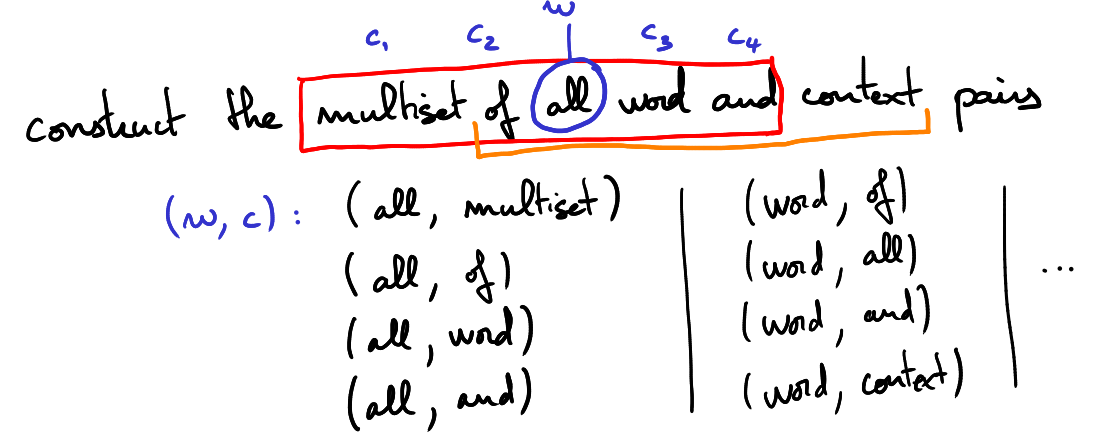 w
c₁ c₂ c₃ c₄
construct the multiset of all word and context pairs
(w, c) : (all, multiset) (word, of)
(all, of) (word, all) ...
(all, word) (word, and)
(all, and) (word, context)